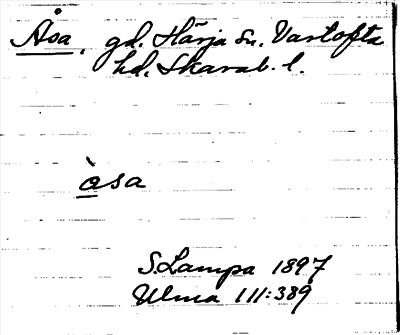 Åsa, gd. Härja sn. Vartofta
hd. Skarab. l.
òsa
S. Lampa 1897
Ulma 111:389